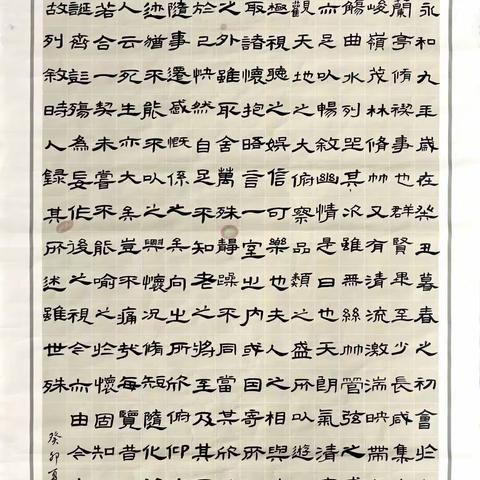 永和九年歲在癸丑暮春之初會於
蘭亭脩禊事也群賢畢至少長咸集
峻嶺茂林脩竹又有清流激湍映帶
觴曲水列坐其次雖無絲竹管弦之
亦足以暢敘幽情是日也天朗氣清
觀天地之大俯察品類之盛所以遊
極視聽之娛信可樂也夫人之相與
取諸懷抱晤言一室之內或因寄所
之外雖取舍萬殊靜躁不同當其欣
於己怏然自足不知老之將至及其
隨事遷感慨係之矣向之所欣俯仰
迹猶不能不以之興懷況脩短隨化
人云死生亦大矣豈不痛哉每覽昔
若合一契未嘗不能喻之於懷固知
誕齊彭殤為妄作後之視今亦由今
故列敘時人錄其所述雖世殊
癸卯夏